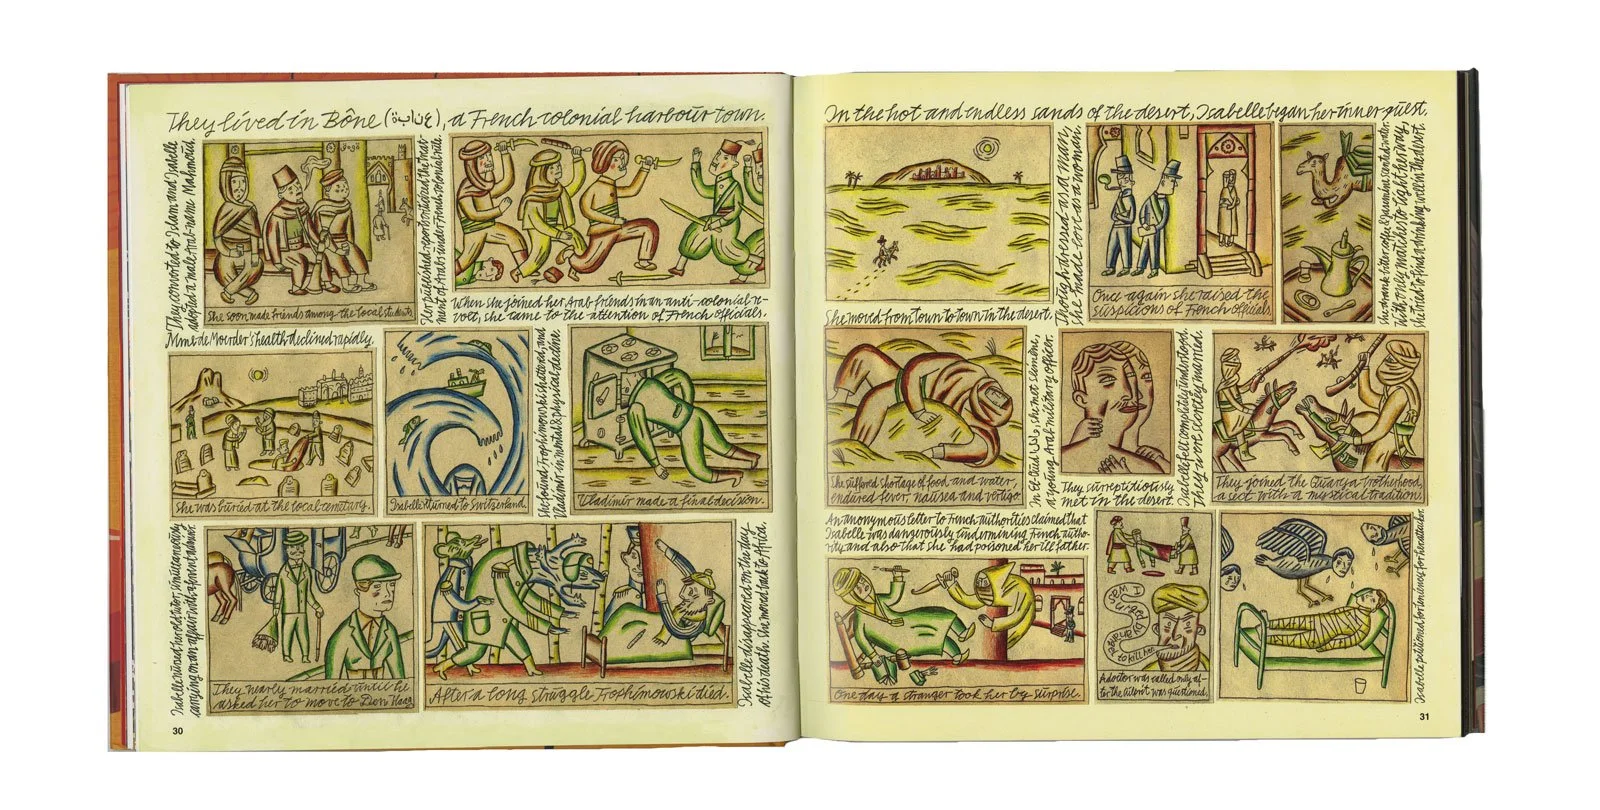 They lived in Bône (عنابة), a French colonial harbour town.
They converted to Islam and Isabelle
adopted a male Arab name Mahmoud.
She soon made friends among the local students.
Her published reports criticized the treat-
ment of Arabs under French colonial rule.
When she joined her Arab friends in an anti-colonial re-
volt, she came to the attention of French officials.
Mme de Moerder's health declined rapidly.
She was buried at the local cemetary.
Isabelle returned to Switzerland.
She found Trophimowski shattered, and
Vladimir in mental & physical decline.
Vladimir made a final decision.
Isabelle nursed her old tutor, simultaneously
carrying on an affair with a former admirer.
They nearly married until he
asked her to move to Den Haag.
After a long struggle Trophimowski died.
Isabelle disappeared on the day
of his death. She moved back to Africa.
30
In the hot and endless sands of the desert, Isabelle began her inner quest.
She moved from town to town in the desert.
Though dressed as a man,
she made love as a woman.
Once again she raised the
suspicions of French officials.
She drank bitter coffee & jasmine scented water.
With only matches to light her way,
she tried to find drinking well in the desert.
She suffered shortage of food and water,
endured fever, nausea and vertigo.
In El Oued, she met Slimène,
a young Arab military officer.
They surreptitiously
met in the desert.
Isabelle felt completely understood.
They were secretly married.
They joined the Quarya brotherhood,
a sect with a mystical tradition.
An anonymous letter to French authorities claimed that
Isabelle was dangerously undermining French autho-
rity and also that she had poisoned her ill father.
One day a stranger took her by surprise.
I was
sent by an angel
to kill her
A doctor was called only af-
ter the culprit was questioned.
Isabelle petitioned for leniency for her attacker.
31